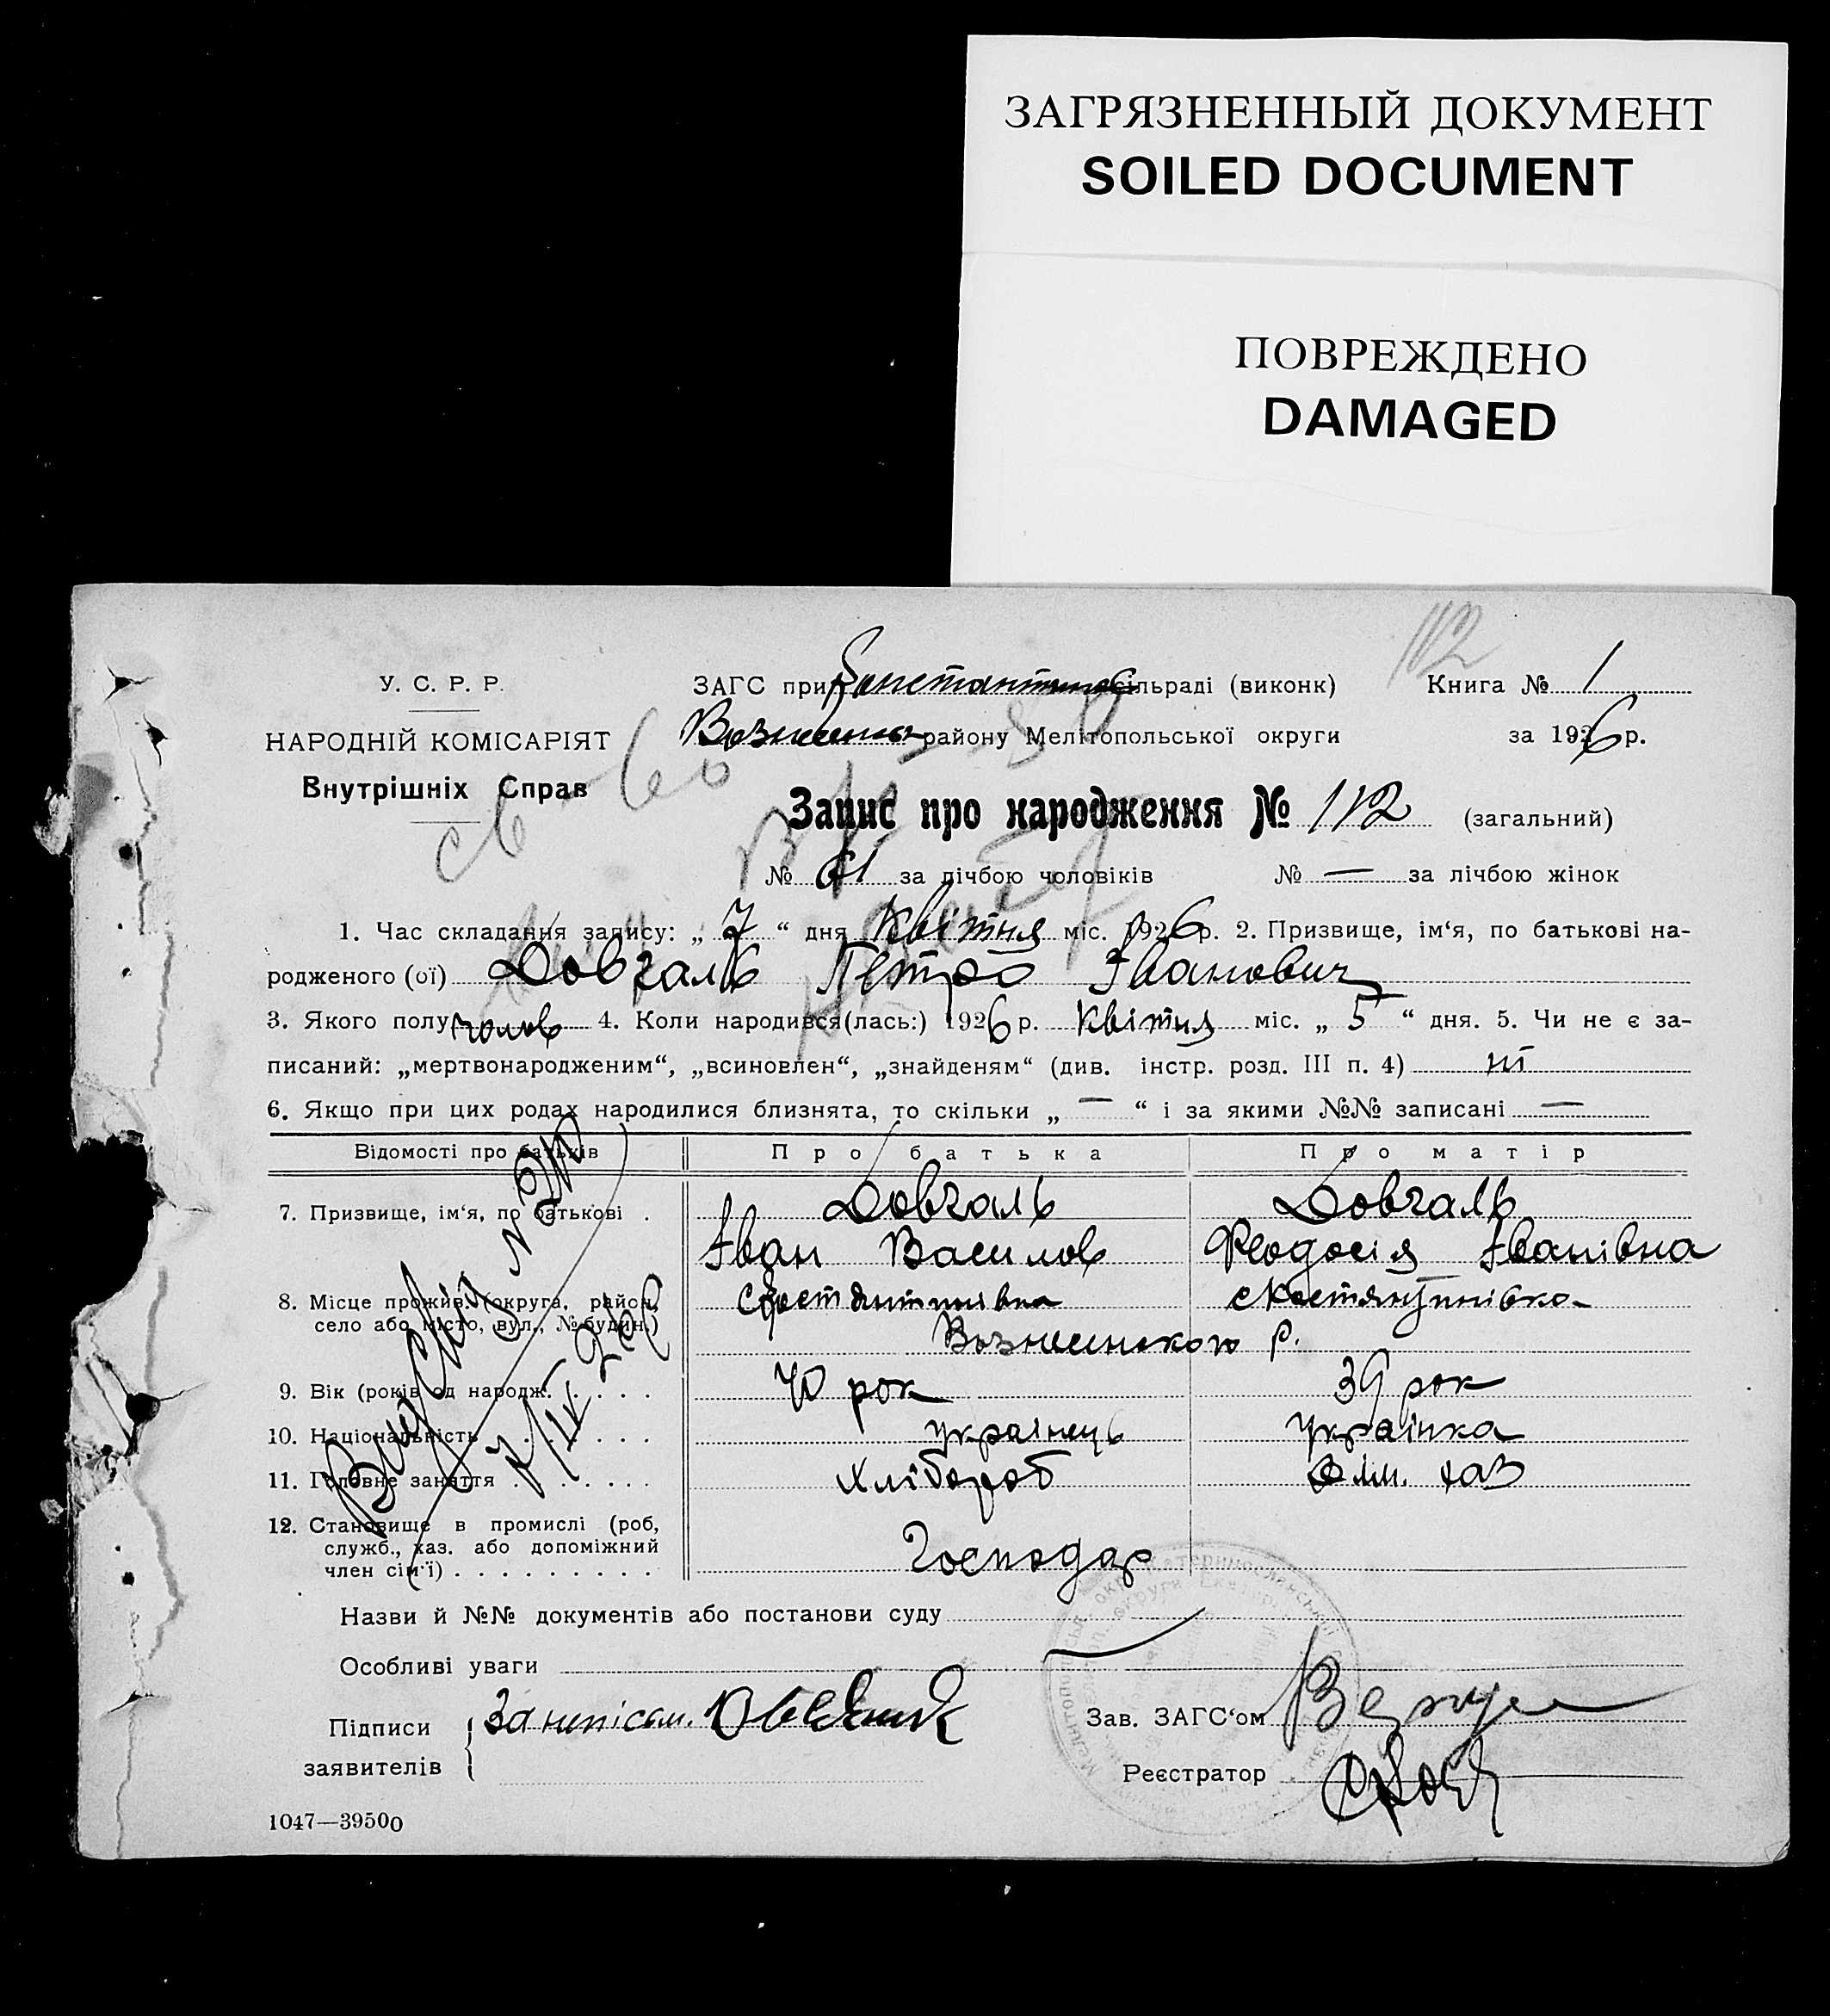 ЗАГРЯЗНЕННЫЙ ДОКУМЕНТ
SOILED DOCUMENT
ПОВРЕЖДЕНО
DAMAGED
112
У. С. Р. Р.
НАРОДНІЙ КОМІСАРІЯТ
Внутрішніх Справ
ЗАГС при Констянтинов сільраді (виконк)
Вознесенск району Мелітопольської округи
Книга № 1
за 1926 р.
Запис про народження № 112 (загальний)
№ 61 за лічбою чоловіків № — за лічбою жінок
1. Час складання запису: „ 7 “ дня Квітня міс. 1926 р. 2. Призвище, ім‘я, по батькові на-
родженого (ої) Довгаль Петро Іванович
3. Якого полу чолов 4. Коли народився(лась:) 1926 р. Квітня міс. „ 5 “ дня. 5. Чи не є за-
писаний: „мертвонародженим“, „всиновлен“, „знайденям“ (див. інстр. розд. III п. 4) ні
6. Якщо при цих родах народилися близнята, то скільки „ — “ і за якими №№ записані —
Відомості про батьків Про батька Про матір
7. Призвище, ім‘я, по батькові . Довгаль Довгаль
Іван Василов Феодосія Іванівна
8. Місце прожив. (округа, район, с Костянтинівка с Костянтинівка
село або місто, вул., № будин.)
Вознесенского р.
9. Вік (років од народж. . . . . 40 рок 39 рок
10. Національність . . . . . . українець українка
11. Головне заняття . . . . . . . хлібороб дом. хаз
12. Становище в промислі (роб,
служб., хаз. або допоміжний
член сім‘ї) . . . . . . . . . . Господар
Назви й №№ документів або постанови суду
Особливі уваги
Підписи
заявителів
За неписьм.
Зав. ЗАГС‘ом
Реєстратор
1047—39500